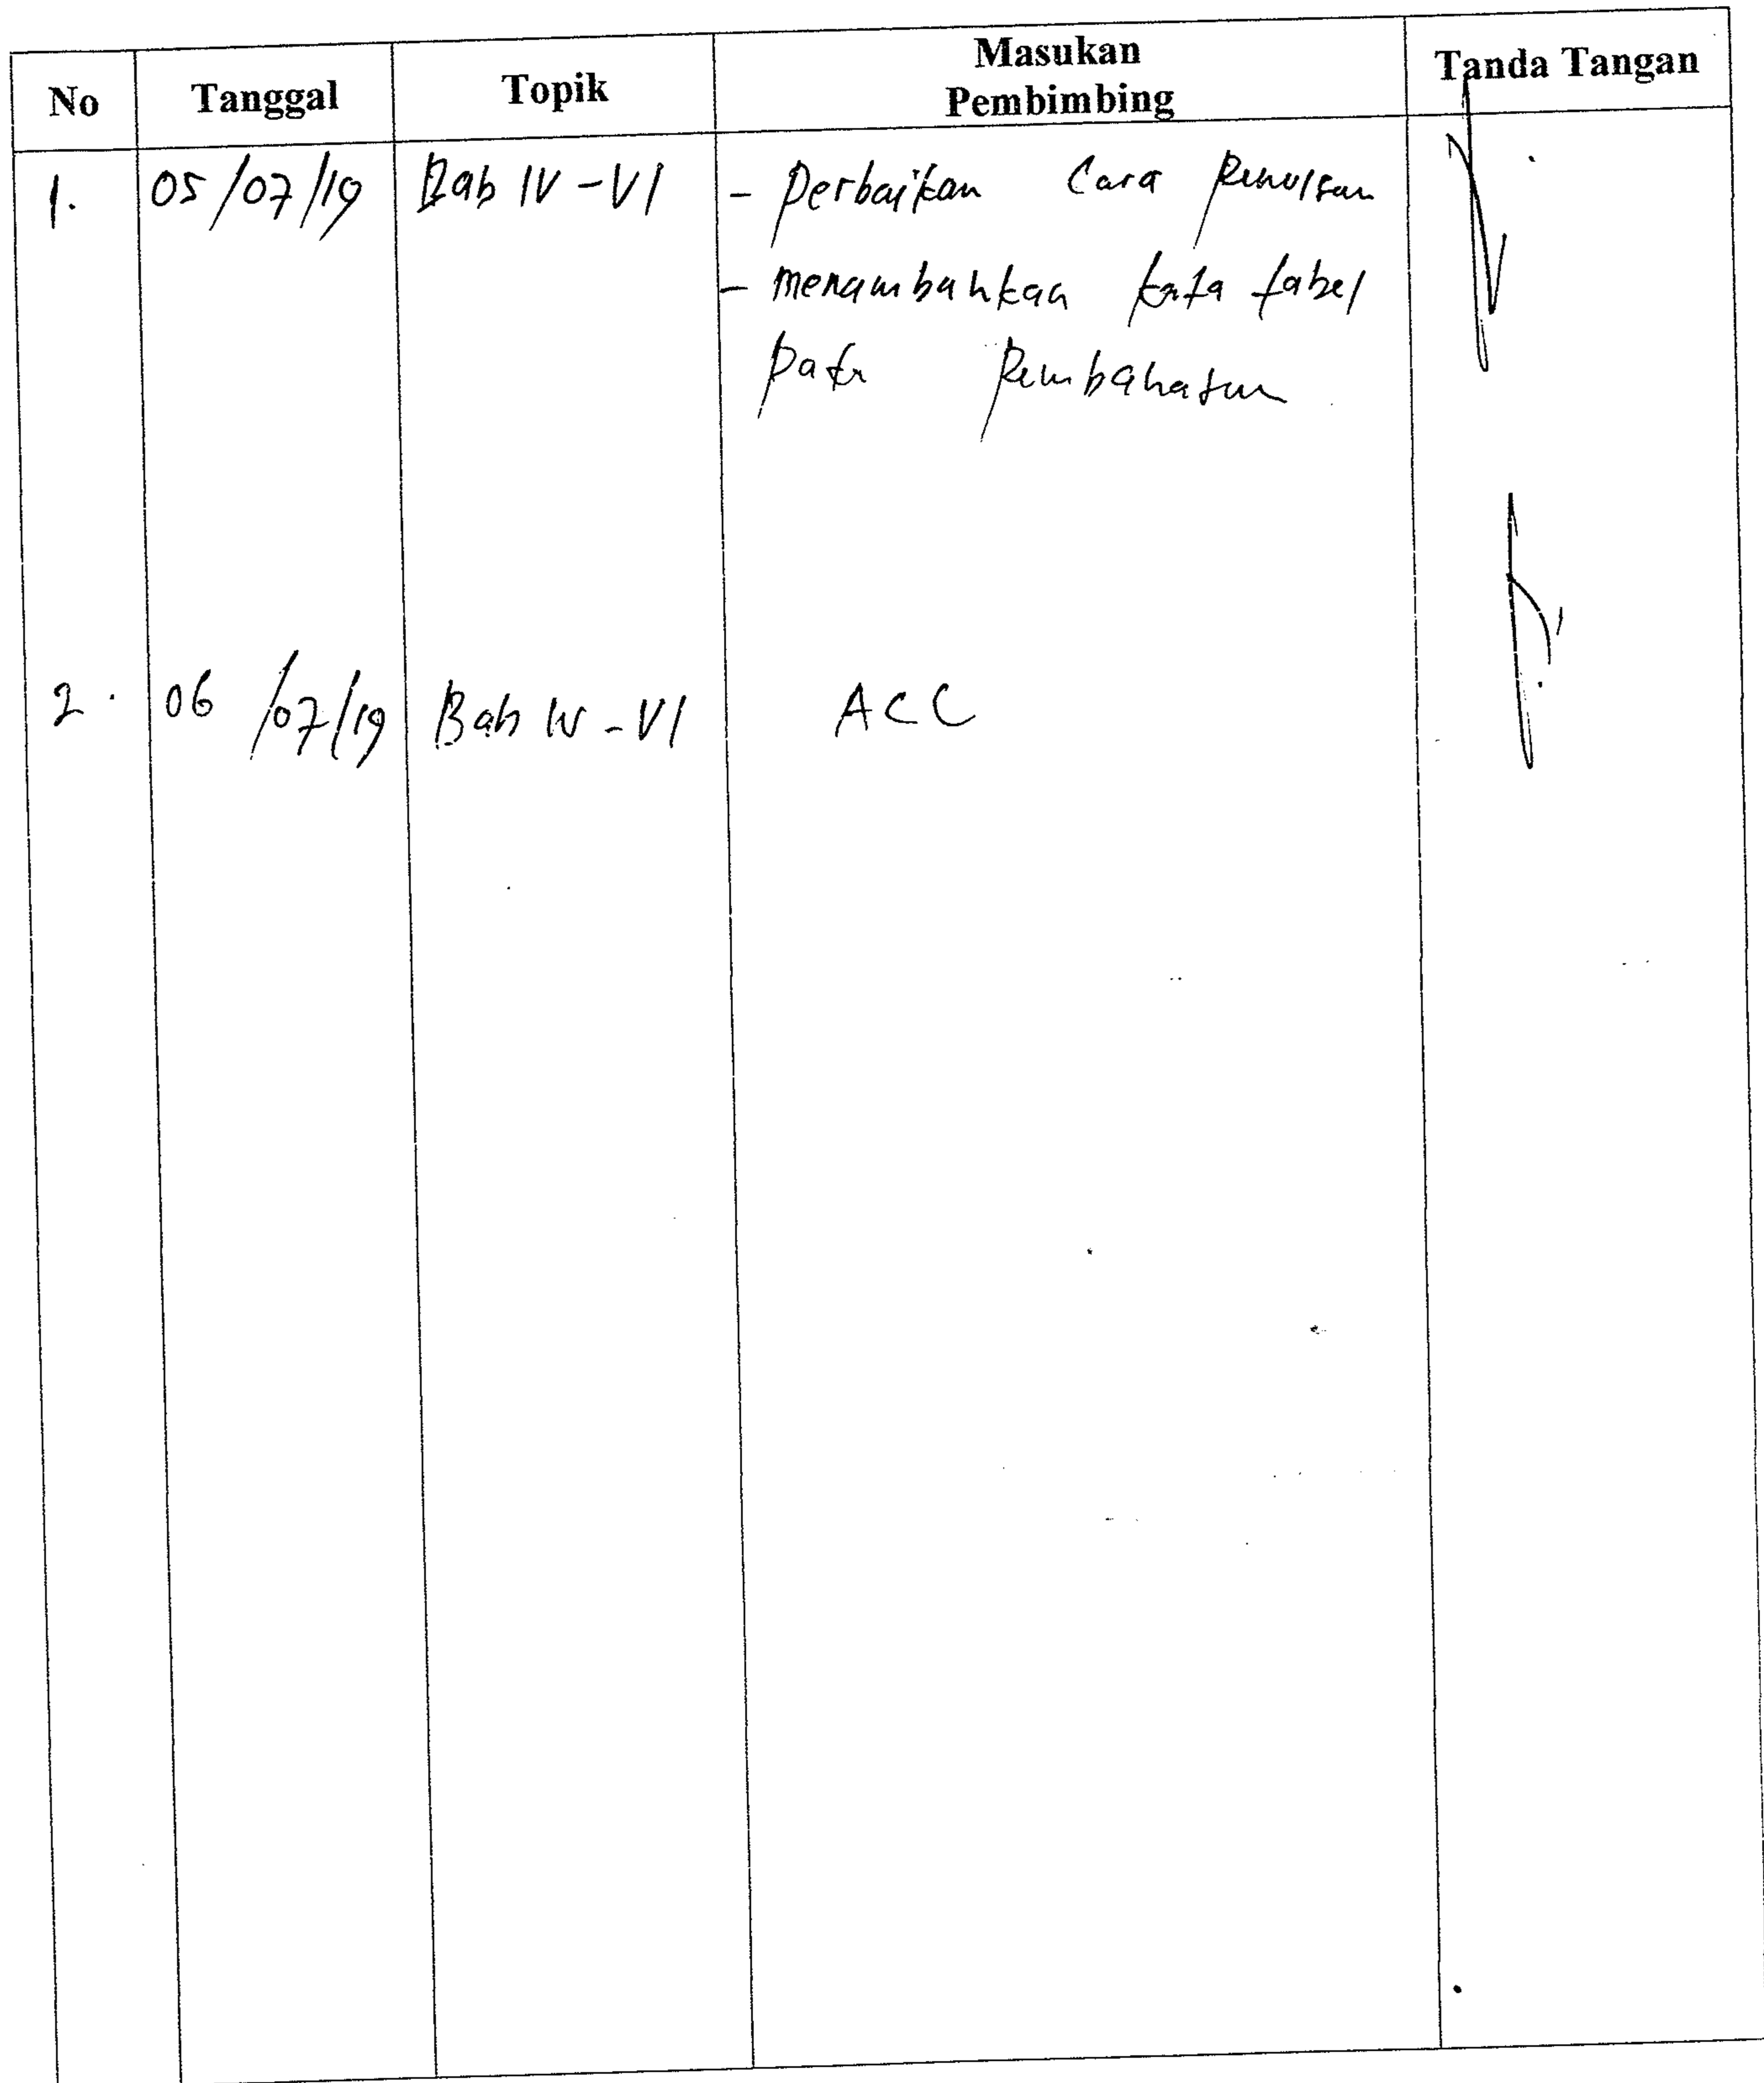 No Tanggal Topik Masukan Pembimbing Tanda Tangan
1. 05/07/19 Bab IV - VI - Perbaikan Cara Penulisan
- menambahkan kata tabel
pada Pembahasan
2. 06/07/19 Bab IV - VI ACC